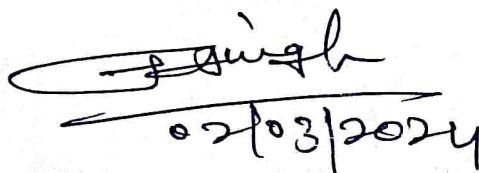 Singh
02/03/2024